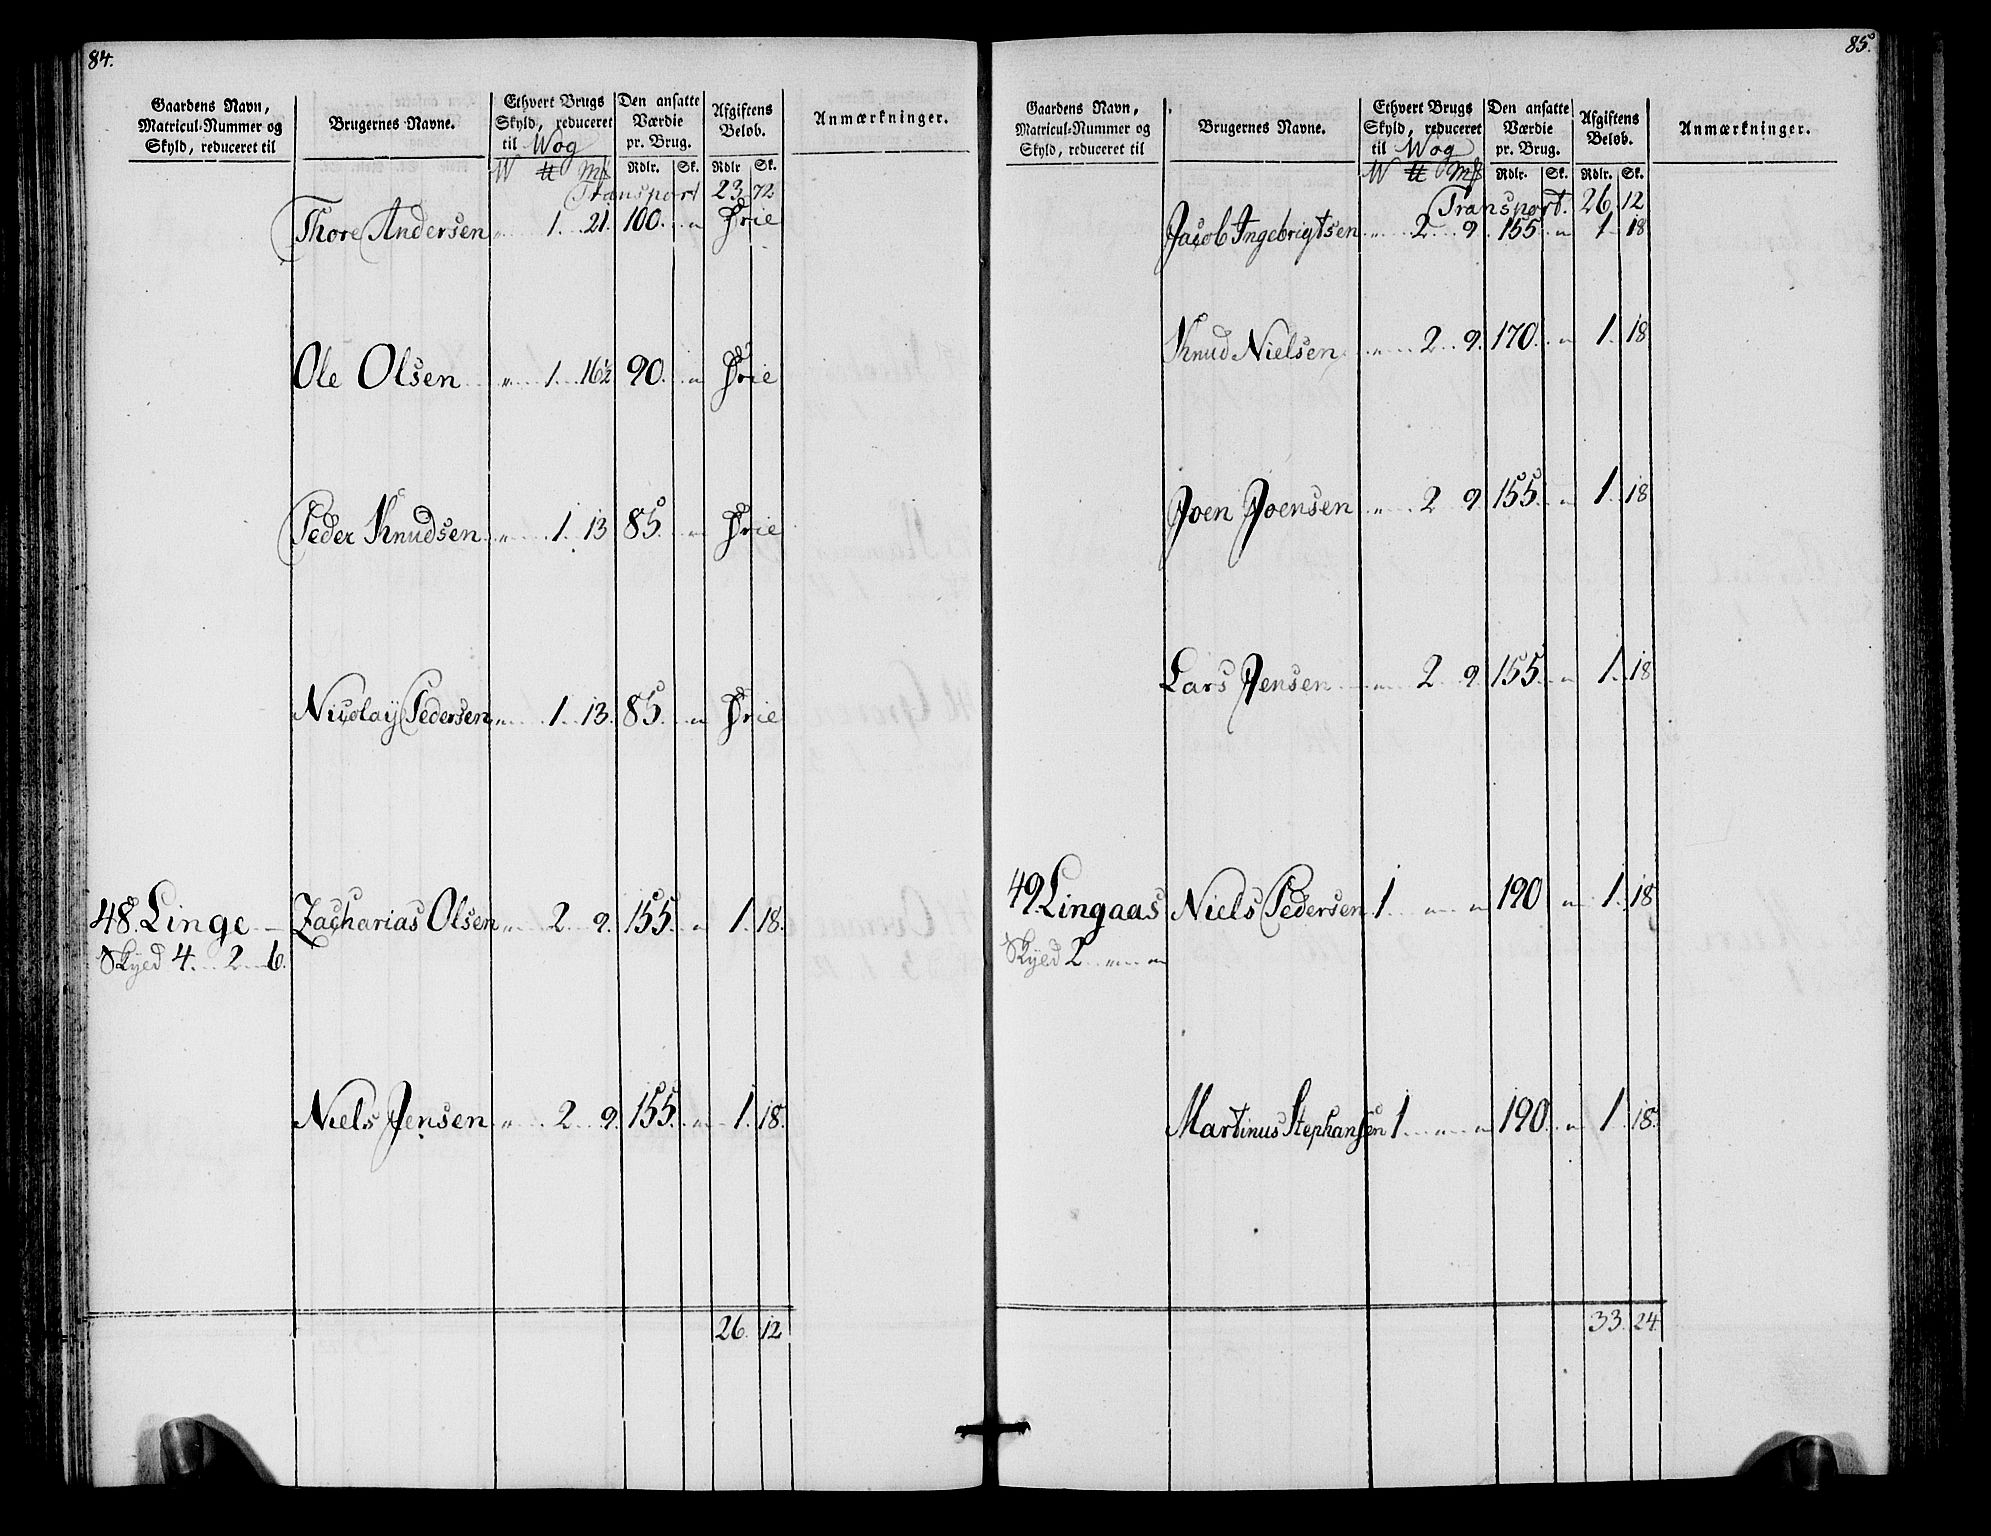 84.
Gaardens Navn, Matricul-Nummer og Skyld, reduceret til
Brugernes Navne.
Ethvert Brugs Skyld, reduceret til Wog
Den ansatte Værdie pr. Brug.
Afgiftens Beløb.
Anmærkninger.
W ℔ Mk Rdlr. Sk. Rdlr Sk.
Transport 23 72
Thore Andersen „ 1 21 100 „ Frie
Ole Olsen „ 1 16½ 90 „ Frie
Peder Knudsen „ 1 13 85 „ Frie
Nicolay Pedersen „ 1 13 85 „ Frie
48. Linge Zacharias Olsen „ 2 9 155 „ 1 18
Skyld 4 2 6
Niels Jensen „ 2 9 155 „ 1 18
26 12
85
Gaardens Navn, Matricul-Nummer og Skyld, reduceret til
Brugernes Navne.
Ethvert Brugs Skyld, reduceret til Wog
Den ansatte Værdie pr. Brug.
Afgiftens Beløb.
Anmærkninger.
W ℔ Mk Rdlr. Sk. Rdlr. Sk.
Transport. 26 12
Jacob Ingebrigtsen „ 2 9 155 „ 1 18
Knud Nielsen „ 2 9 170 „ 1 18
Joen Joensen „ 2 9 155 „ 1 18
Lars Jensen „ 2 9 155 „ 1 18
49. Lingaas Niels Pedersen 1 „ „ 190 „ 1 18
Skyld 2 „ „
Martinus Stephansen 1 „ „ 190 „ 1 18
33 24